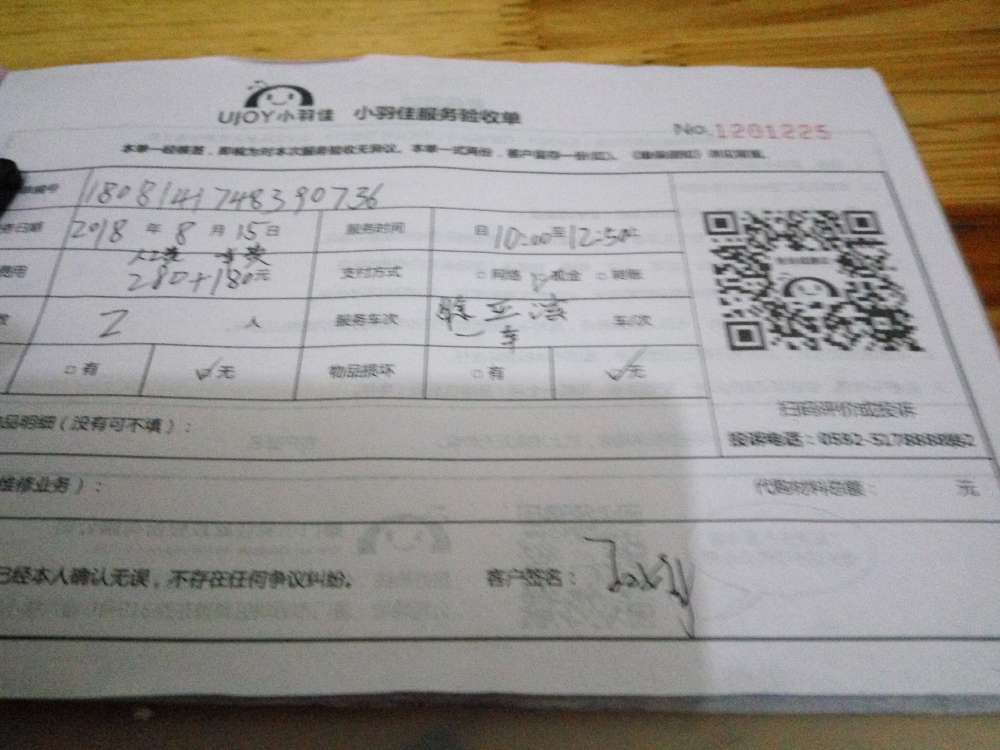 UJOY小羽佳 小羽佳服务验收单
No.1201225
本单一经签署，即视为对本次服务验收无异议。本单一式两份，客户留存一份
编号 1808141748390736
日期 2018 年 8 月 15 日 服务时间 自 10:00 至 12:50止
费用 人工费 车费 280+180 元 支付方式 □网络 ☑现金 □转账
2 人 服务车次 车/次
□有 ☑无 物品损坏 □有 ☑无
扫码评价或投诉
品明细（没有可不填）：
投诉电话：0552-
维修业务）： 代购材料总额： 元
已经本人确认无误，不存在任何争议纠纷。 客户签名：